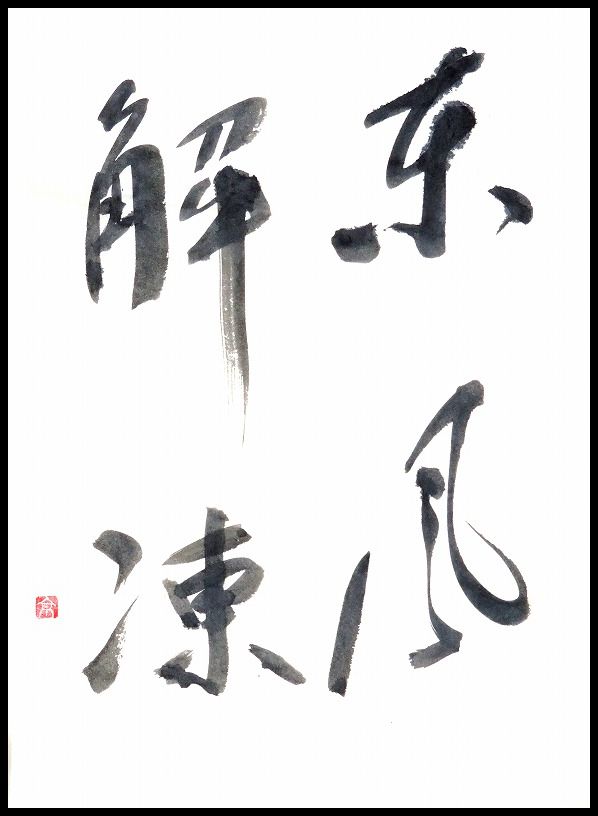 東風
解凍